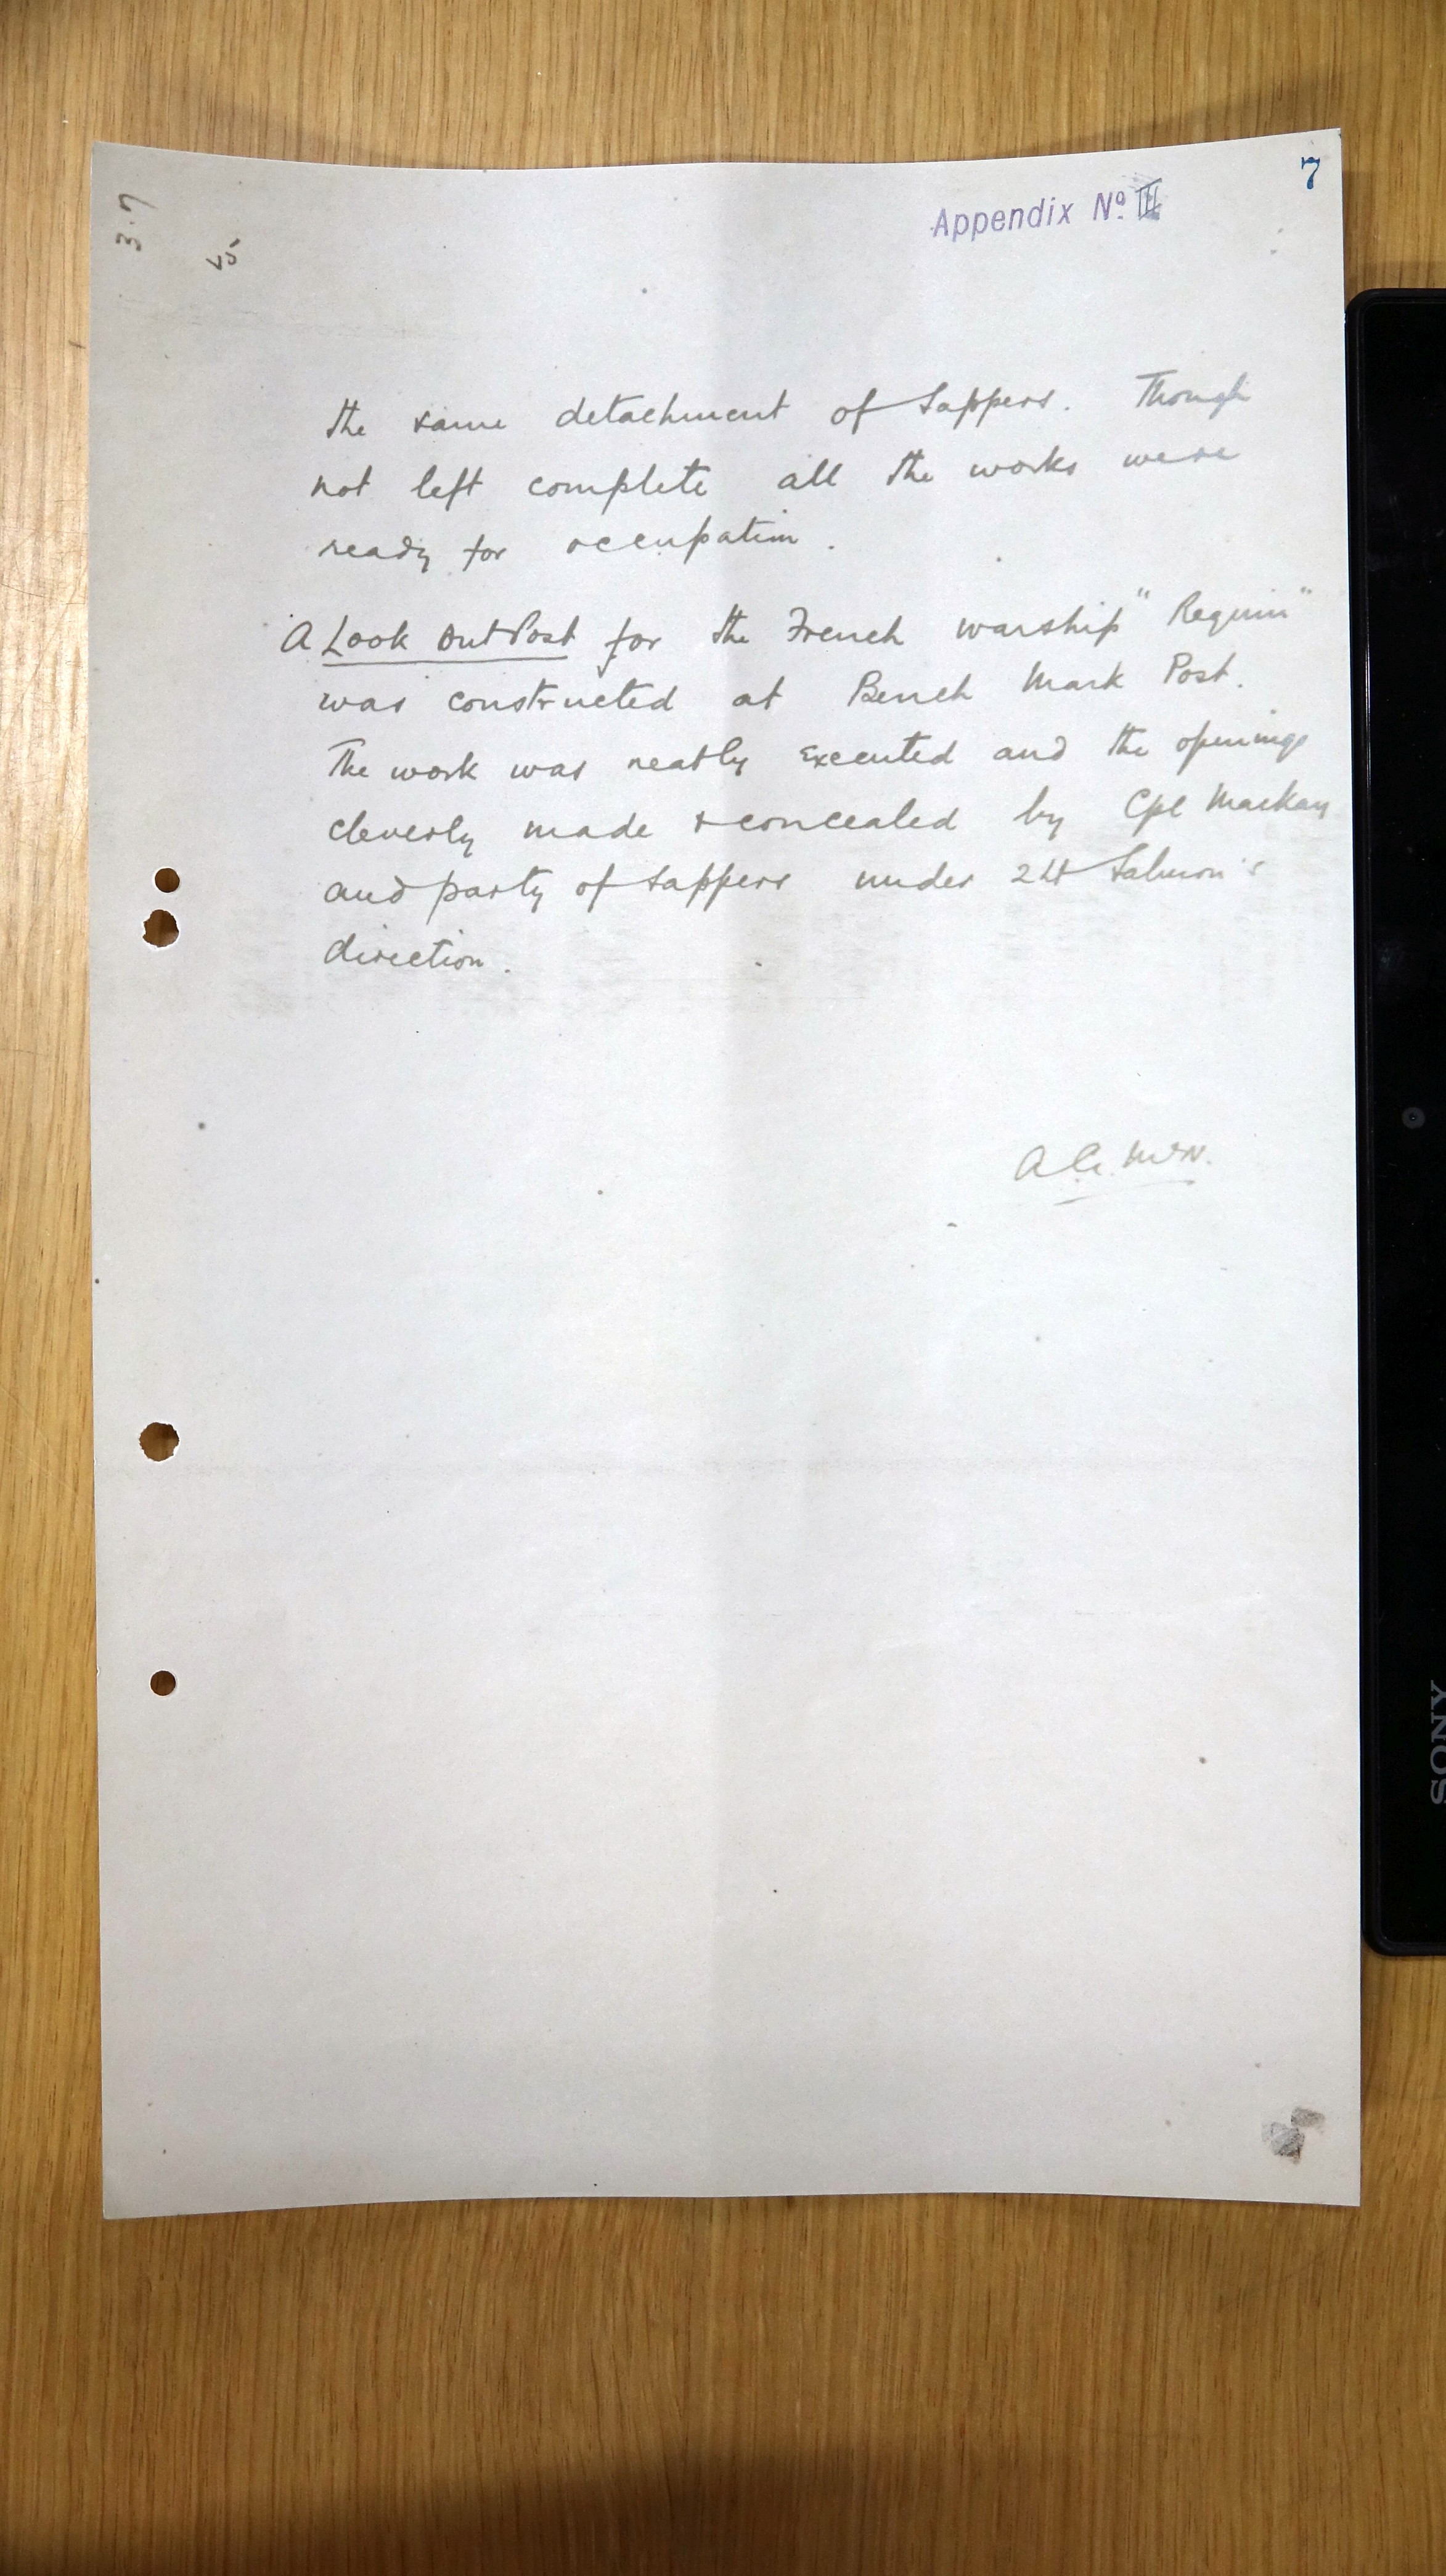 7
Appendix No. III
3.7
the same detachment of Sappers. Though
not left complete all the works were
ready for occupation.
A Look Out Post for the French warship "Requin"
was constructed at Bench Mark Post.
The work was neatly executed and the openings
cleverly made & concealed by Cpl Mackay
and party of Sappers under 2Lt Salmon's
direction.
A.G. McN.
SONY